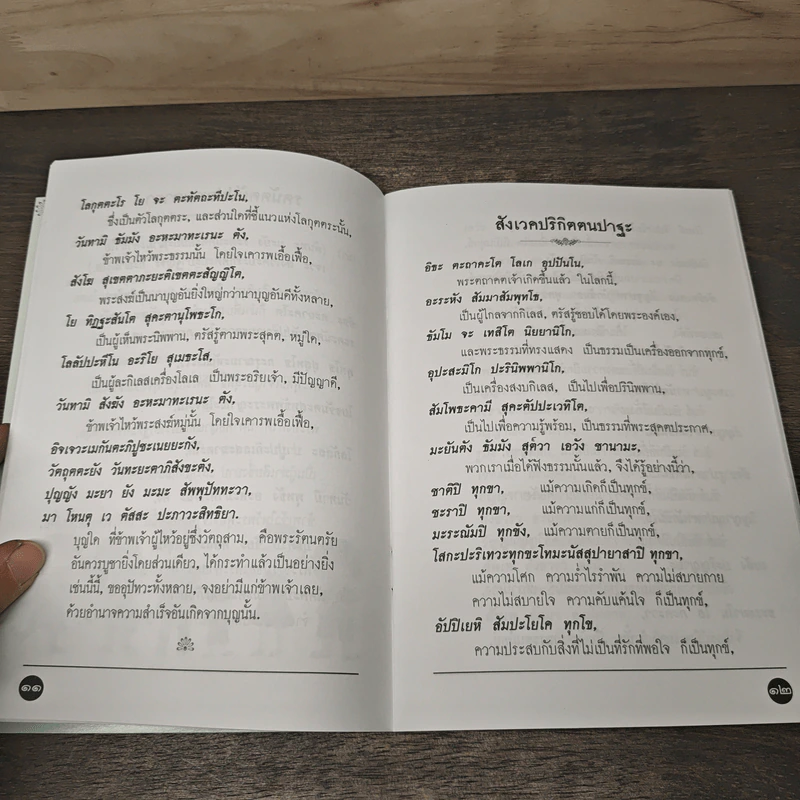 โลกุตตะโร โย จะ ตะทัตถะทีปะโน,
ซึ่งเป็นตัวโลกุตตระ, และส่วนใดที่ชี้แนวแห่งโลกุตตระนั้น,
วันทามิ ธัมมัง อะหะมาทะเรนะ ตัง,
ข้าพเจ้าไหว้พระธรรมนั้น โดยใจเคารพเอื้อเฟื้อ,
สังโฆ สุเขตตาภยะติเขตตะสัญญิโต,
พระสงฆ์เป็นนาบุญอันยิ่งใหญ่กว่านาบุญอันดีทั้งหลาย,
โย ทิฏฐะสันโต สุคะตานุโพธะโก,
เป็นผู้เห็นพระนิพพาน, ตรัสรู้ตามพระสุคต, หมู่ใด,
โลลัปปะหีโน อะริโย สุเมธะโส,
เป็นผู้ละกิเลสเครื่องโลเล เป็นพระอริยเจ้า, มีปัญญาดี,
วันทามิ สังฆัง อะหะมาทะเรนะ ตัง,
ข้าพเจ้าไหว้พระสงฆ์หมู่นั้น โดยใจเคารพเอื้อเฟื้อ,
อิจเจวะเมกันตะภิปูชะเนยยะกัง,
วัตถุตตะยัง วันทะยะตาภิสังขะตัง,
ปุญญัง มะยา ยัง มะมะ สัพพุปัททะวา,
มา โหนตุ เว ตัสสะ ปะภาวะสิทธิยา.
บุญใด ที่ข้าพเจ้าผู้ไหว้อยู่ซึ่งวัตถุสาม, คือพระรัตนตรัย
อันควรบูชายิ่งโดยส่วนเดียว, ได้กระทำแล้วเป็นอย่างยิ่ง
เช่นนี้นี้, ขออุปัทวะทั้งหลาย, จงอย่ามีแก่ข้าพเจ้าเลย,
ด้วยอำนาจความสำเร็จอันเกิดจากบุญนั้น.
๑๑
สังเวคปริกิตตนปาฐะ
อิธะ ตะถาคะโต โลเก อุปปันโน,
พระตถาคตเจ้าเกิดขึ้นแล้ว ในโลกนี้,
อะระหัง สัมมาสัมพุทโธ,
เป็นผู้ไกลจากกิเลส, ตรัสรู้ชอบได้โดยพระองค์เอง,
ธัมโม จะ เทสิโต นิยยานิโก,
และพระธรรมที่ทรงแสดง เป็นธรรมเป็นเครื่องออกจากทุกข์,
อุปะสะมิโก ปะรินิพพานิโก,
เป็นเครื่องสงบกิเลส, เป็นไปเพื่อปรินิพพาน,
สัมโพธะคามี สุคะตัปปะเวทิโต,
เป็นไปเพื่อความรู้พร้อม, เป็นธรรมที่พระสุคตประกาศ,
มะยันตัง ธัมมัง สุต๎วา เอวัง ชานามะ,
พวกเราเมื่อได้ฟังธรรมนั้นแล้ว, จึงได้รู้อย่างนี้ว่า,
ชาติปิ ทุกขา, แม้ความเกิดก็เป็นทุกข์,
ชะราปิ ทุกขา, แม้ความแก่ก็เป็นทุกข์,
มะระณัมปิ ทุกขัง, แม้ความตายก็เป็นทุกข์,
โสกะปะริเทวะทุกขะโทมะนัสสุปายาสาปิ ทุกขา,
แม้ความโศก ความร่ำไรรำพัน ความไม่สบายกาย
ความไม่สบายใจ ความคับแค้นใจ ก็เป็นทุกข์,
อัปปิเยหิ สัมปะโยโค ทุกโข,
ความประสบกับสิ่งที่ไม่เป็นที่รักที่พอใจ ก็เป็นทุกข์,
๑๒